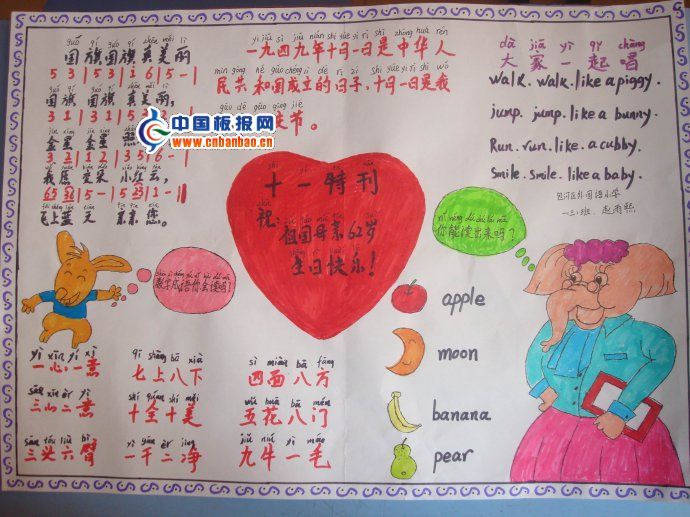 guó qí guó qí zhēn měi lì
国旗国旗真美丽
5 3 | 5 3 | i 6 | 5 - |
国旗 国旗 真美丽,
3 1 | 3 1 | 5
金星 金星
3 2 | 1 2 | 3 5 | 6 - |
我愿 变朵 小红云,
飞上蓝 天 亲亲 您。
yī jiǔ sì jiǔ nián shí yuè yī rì shì zhōng huá rén
一九四九年十月一日是中华人
民共和国成立的日子.十月一日是我
庆节。
dà jiā yì qǐ chàng
大家一起唱
walk. walk. like a piggy.
jump. jump. like a bunny.
Run. run. like a cubby.
Smile. Smile. like a baby.
包河区外国语小学
十一特刊
祝:
祖国母亲62岁
生日快乐!
你能读出来吗?
数字成语你会读吗?
中国板报网
www.cnbanbao.cn
apple
moon
banana
pear
yì xīn yí yì
一心一意
qī shàng bā xià
七上八下
sì miàn bā fāng
四面八方
sān xīn èr yì
三心二意
shí quán shí měi
十全十美
wǔ huā bā mén
五花八门
sān tóu liù bì
三头六臂
yì gān èr jìng
一干二净
jiǔ niú yì máo
九牛一毛